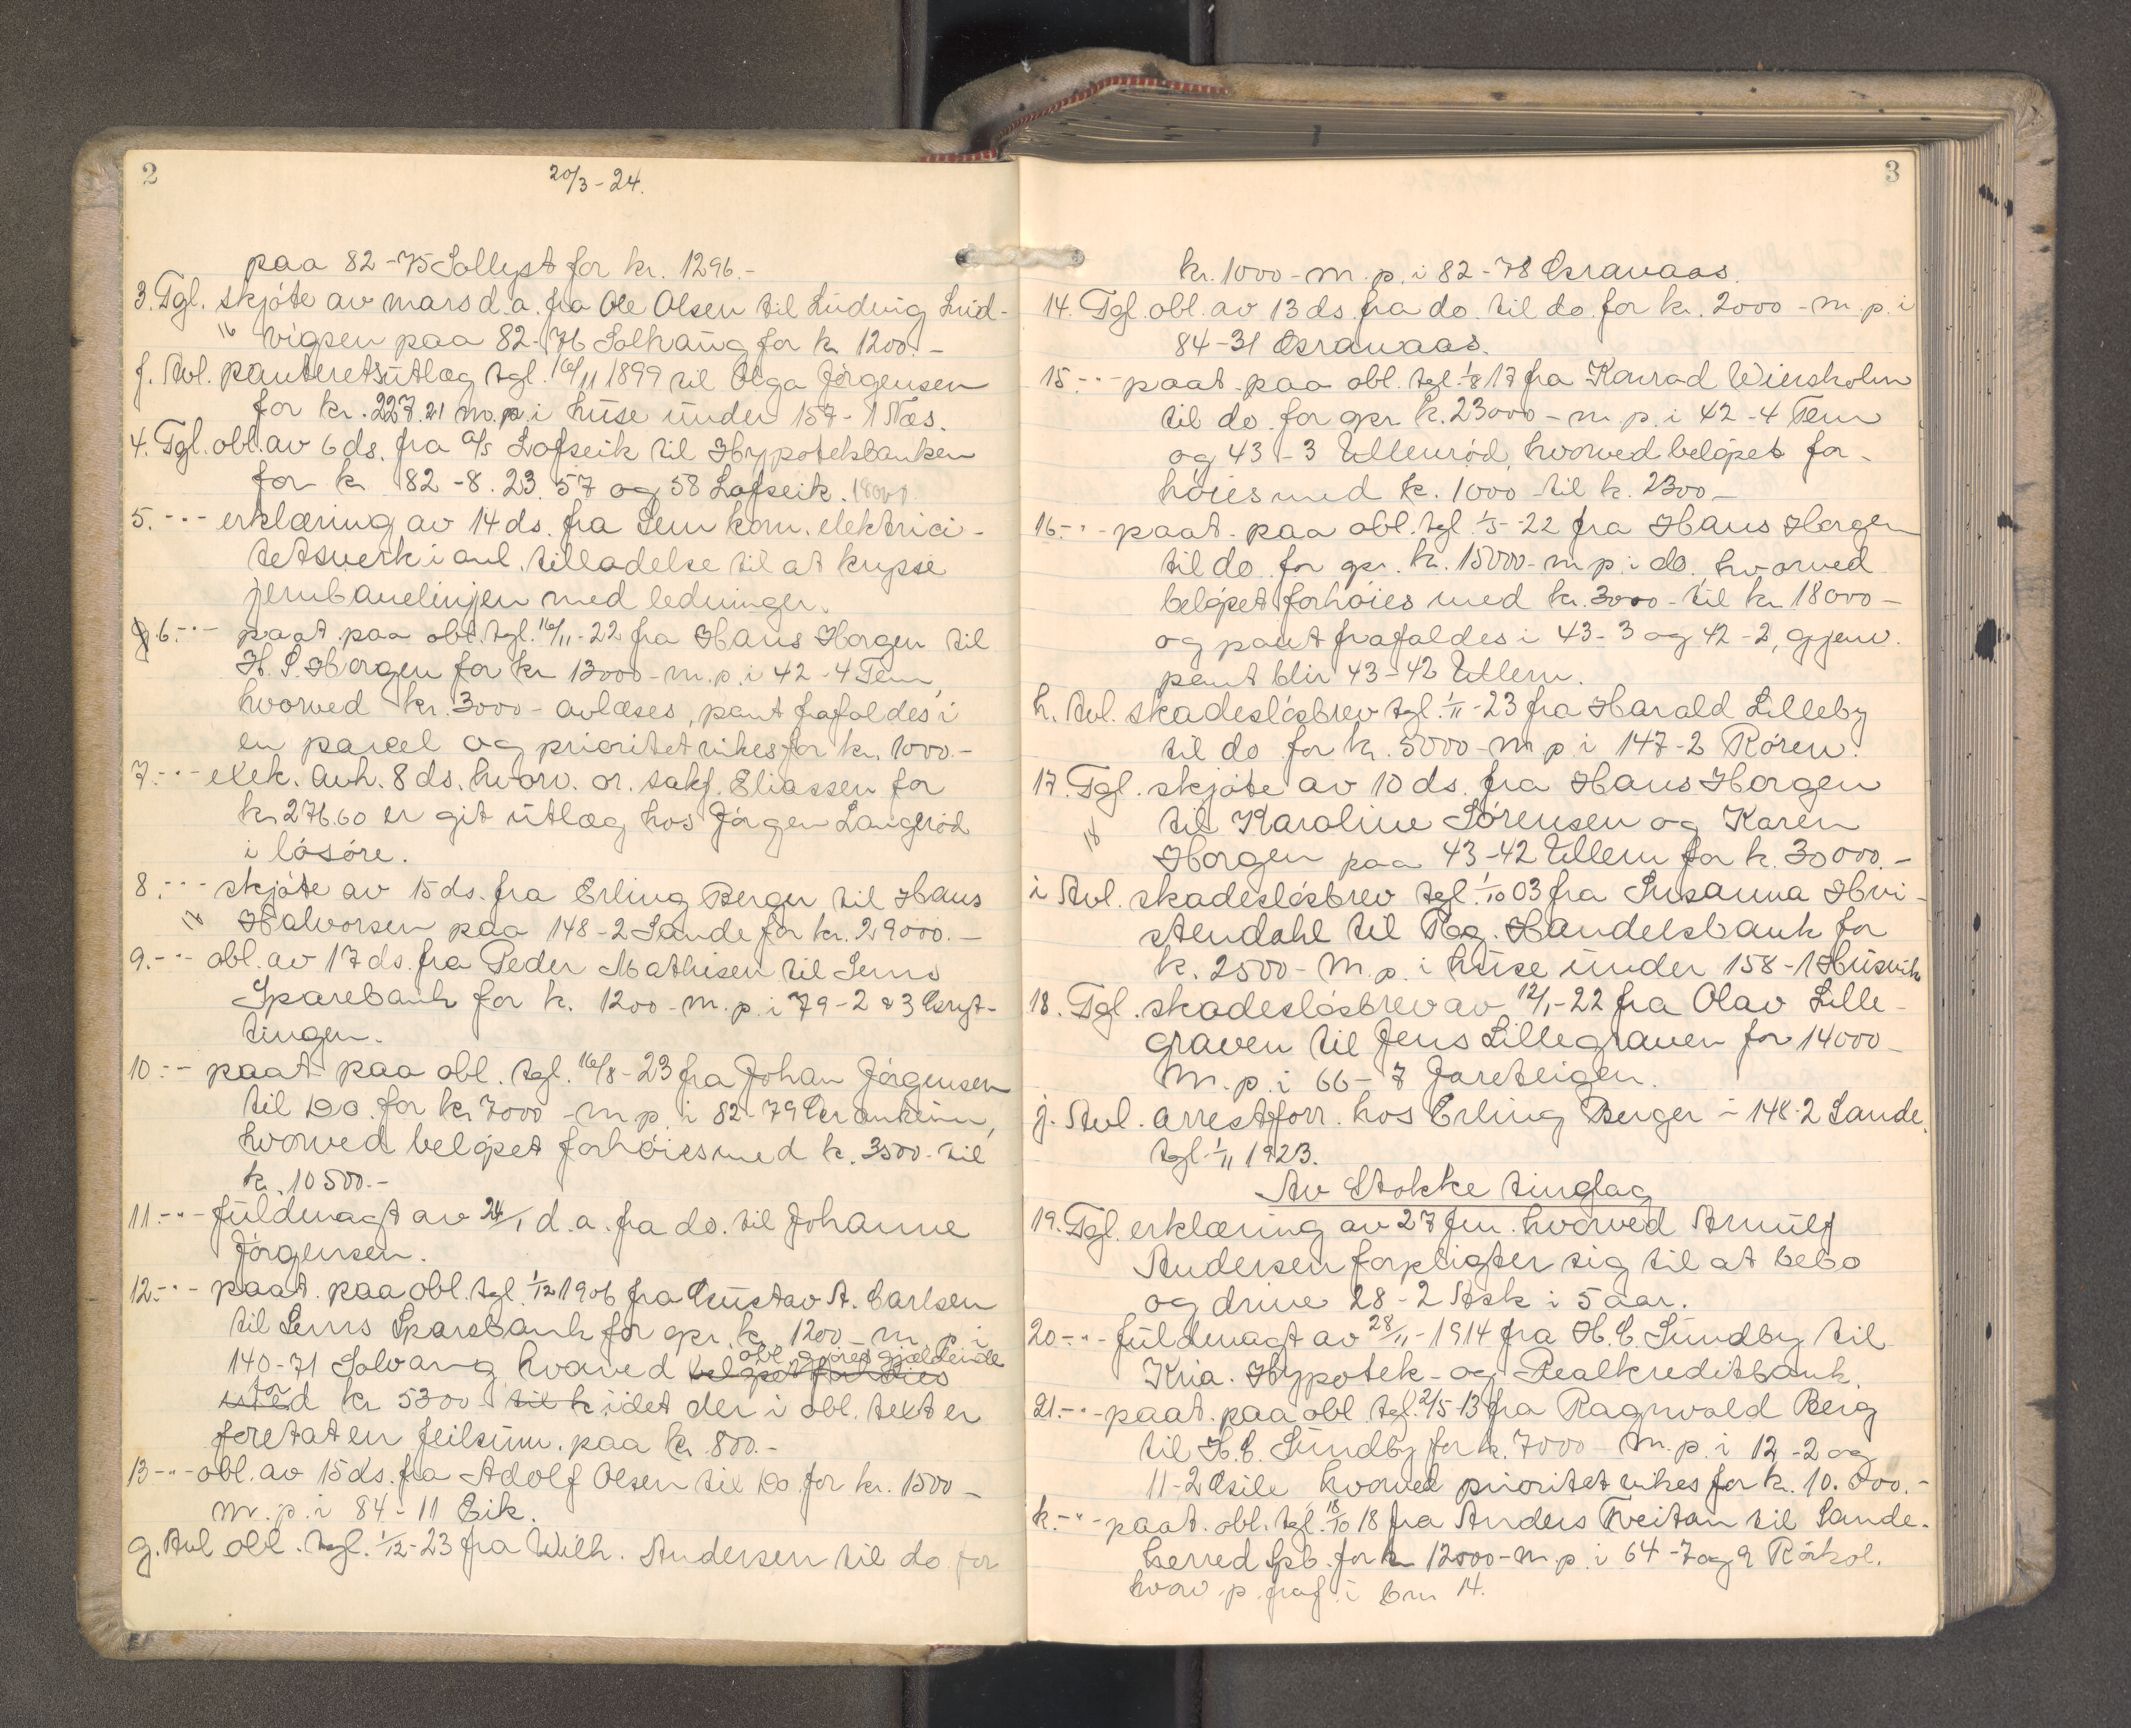 2
20/3-24.
paa 82-75 Sollyst for kr. 1296.-
3. Tgl. skjöte av mars d.a. fra Ole Olsen til Ludvig Lud-
16 vigsen paa 82-76 Solhaug for kr. 1200.-
f. Avl. panteretsutlæg tgl. 16/11 1899 til Olga Jörgensen
for kr. 227.21 m.p. i huse under 157-1 Næs.
4. Tgl. obl. av 6 ds. fra A/s Lofseik til Hypotekbanken
for kr 82-8. 23. 57 og 58 Lofseik. 18000
5. -"- erklæring av 14 ds. fra Sem kom. elektrici-
tetsverk i anl. tilladelse til at krysse
jernbanelinjen med ledninger.
6. -"- paat. paa obl. tgl. 16/11-22 fra Hans Horgen til
H. S. Horgen for kr 13000- m.p. i 42-4 Tem,
hvorved kr. 3000- avlæses, pant frafaldes i
en parcel og prioritet vikes for kr. 1000.-
7. -"- exek. avh. 8 ds. hvorv. or. sakf. Eliassen for
kr 276.60 er git utlæg hos Jörgen Langeröd
i lösöre.
8. -"- skjöte av 15 ds. fra Erling Berger til Hans
17 Halvorsen paa 148-2 Sande for kr. 29000.-
9. -"- obl. av 17 ds. fra Peder Mathisen til Sems
Sparebank for k. 1200- m.p. i 79-2 & 3 Gryt-
tingen.
10. -"- paat. paa obl. tgl. 16/8-23 fra Johan Jörgensen
til Do. for kr 7000- m.p. i 82-79 Granheim,
hvorved belöpet forhöies med k. 3500- til
k. 10500.-
11. -"- fuldmagt av 24/1 d.a. fra do. til Johanne
Jörgensen.
12. -"- paat. paa obl. tgl. 1/12 1906 fra Gustav A. Carlsen
til Sems Sparebank for opr. k. 1200- m.p. i
obl. gjöres gjældende
140-71 Solvang hvorved belöpet forhöies
for
med kr 5300 til k idet der i obl. text er
foretat en feilsum. paa kr. 800.-
13 -"- obl. av 15 ds. fra Adolf Olsen til Do. for kr. 1500-
m.p. i 84-11 Eik.
g. Avl obl. tgl. 1/12-23 fra Wilh. Andersen til do. for
3
kr. 1000- m.p. i 82-78 Granaas.
14. Tgl. obl. av 13 ds. fra do. til do. for kr. 2000- m.p. i
84-31 Granaas.
15. -"- paat. paa obl. tgl. 1/8 17 fra Konrad Wiersholm
til do. for opr k. 23000- m.p. i 42-4 Tem
og 43-3 Ullenröd, hvorved belöpet for-
höies med k. 1000- til k. 2300-
16. -"- paat. paa obl. tgl. 1/5-22 fra Hans Horgen
til do. for opr. kr. 15000- m.p. i do. hvorved
belöpet forhöies med kr. 3000- til kr 18000-
og pant frafaldes i 43-3 og 42-2, gjenv.
pant blir 43-42 Ullern.
h. Avl. skadeslösbrev tgl. 1/11-23 fra Harald Lilleby
til do. for kr. 5000- m.p. i 147-2 Rören.
17. Tgl. skjöte av 10 ds. fra Hans Horgen
18 til Karoline Sörensen og Karen
Horgen paa 43-42 Ullern for k. 30000.-
i Avl. skadeslösbrev tgl. 1/10 03 fra Susanna Hvi-
stendahl til Tbg. Handelsbank for
k. 2500- m.p. i huse under 158-1 Husvik
18. Tgl. skadeslösbrev av 12/1-22 fra Olav Lille-
graven til Jens Lillegraven for 14000-
m.p. i 66-7 Jareteigen.
j. Avl. arrestforr. hos Erling Berger i 148-2 Sande.
tgl. 1/11 1923.
Av Stokke tinglag
19. Tgl. erklæring av 27 jan. hvorved Arnulf
Andersen forpligter sig til at bebo
og drive 28-2 Ask i 5 aar.
20 -"- fuldmagt av 28/11-1914 fra H. C. Sundby til
Kria. Hypotek- og Realkreditbank.
21. -"- paat. paa obl tgl. 2/5-13 fra Ragnvald Berg
til H. C. Sundby for k. 7000- m.p. i 12-2 og
11-2 Gile hvorved prioritet vikes for k. 10.000.-
k. -"- paat. obl. tgl. 18/10 18 fra Anders Tveitan til Sande-
herred Spb. for k 12000- m.p. i 64-7 og 9 Rörkol.
hvorv. p. fraf. i bnr 14.